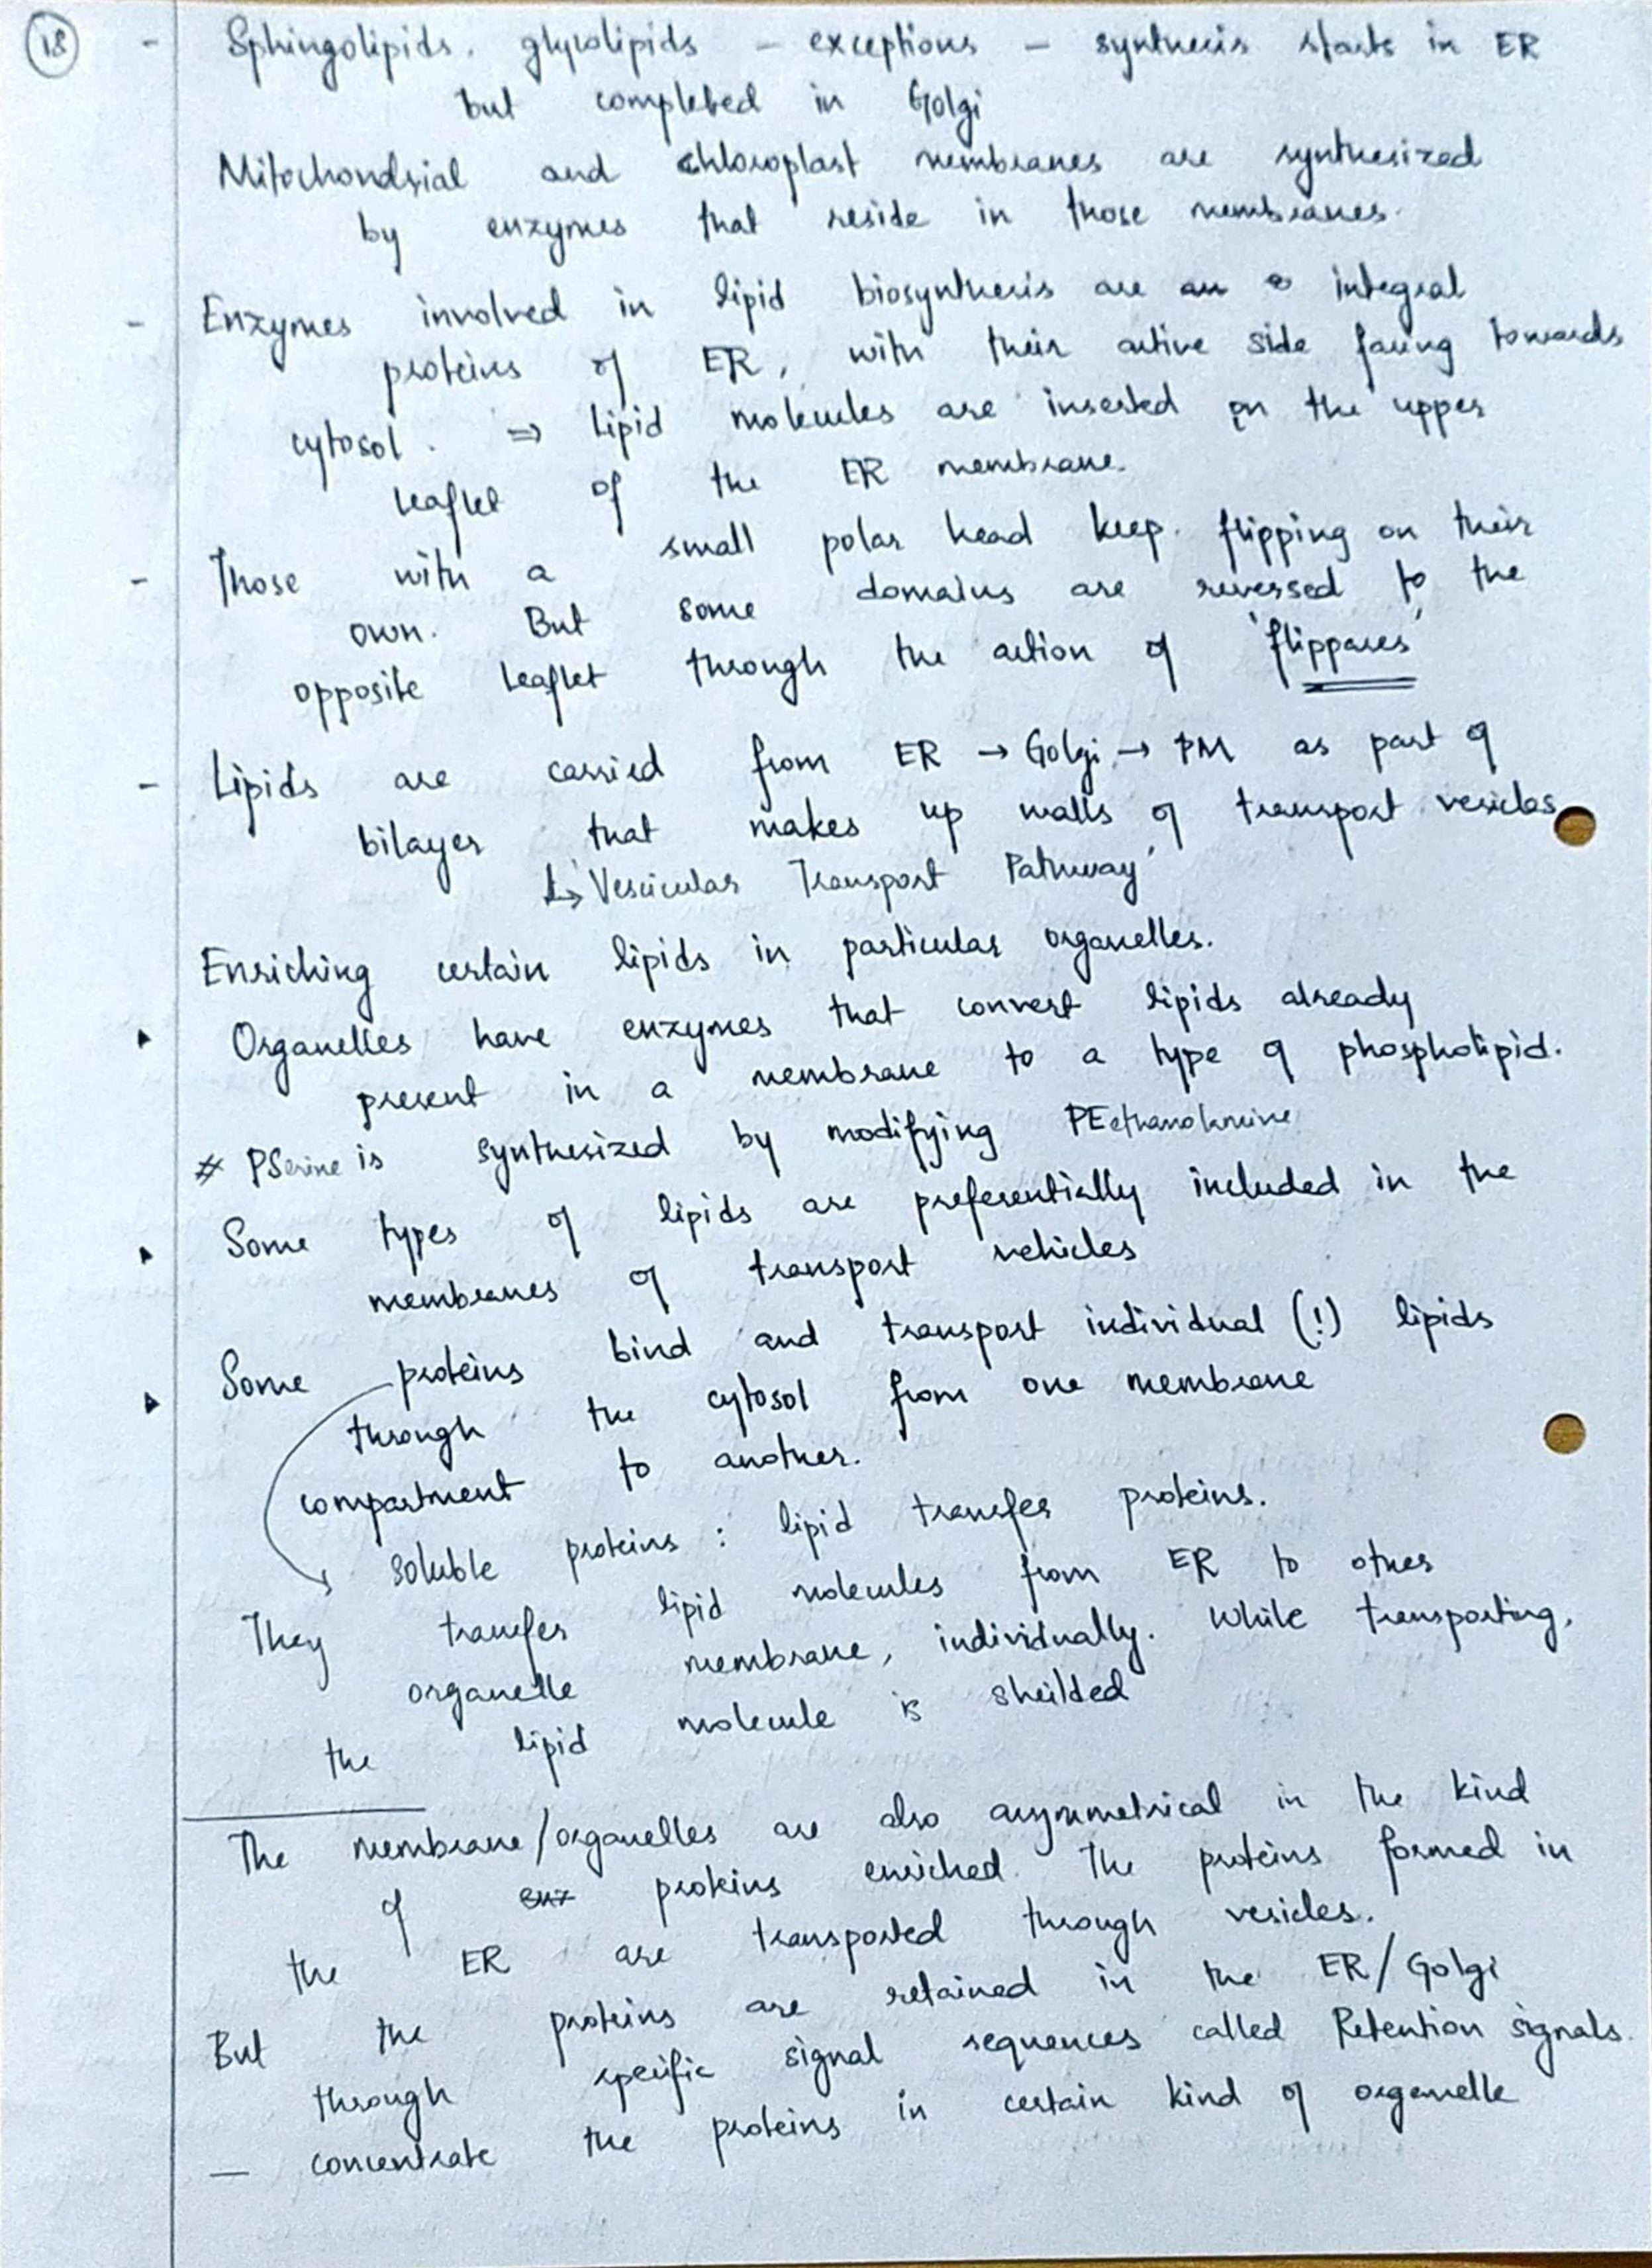 18
- Sphingolipids. glycolipids - exceptions - synthesis starts in ER
but completed in Golgi
Mitochondrial and chloroplast membranes are synthesized
by enzymes that reside in those membranes.
- Enzymes involved in lipid biosynthesis are integral
proteins of ER, with their active side facing towards
cytosol. ⇒ Lipid molecules are inserted on the upper
leaflet of the ER membrane.
- Those with a small polar head keep flipping on their
own. But some domains are reversed to the
opposite leaflet through the action of 'flippases'
- Lipids are carried from ER → Golgi → PM as part of
bilayer that makes up walls of transport vesicles
↳ Vescicular Transport Pathway'
Enriching certain lipids in particular organelles.
▸ Organelles have enzymes that convert lipids already
present in a membrane to a type of phospholipid.
# PSerine is synthesized by modifying PEethanolamine
▸ Some types of lipids are preferentially included in the
membranes of transport vehicles
▸ Some proteins bind and transport individual (!) lipids
through the cytosol from one membrane
compartment to another.
soluble proteins : lipid transfer proteins.
They transfer lipid molecules from ER to other
organelle membrane, individually. While transporting,
the lipid molecule is sheilded
The membrane/organelles are also asymmetrical in the kind
of proteins enriched. The proteins formed in
the ER are transported through vesicles.
But the proteins are retained in the ER/Golgi
through specific signal sequences called Retention signals.
— concentrate the proteins in certain kind of organelle